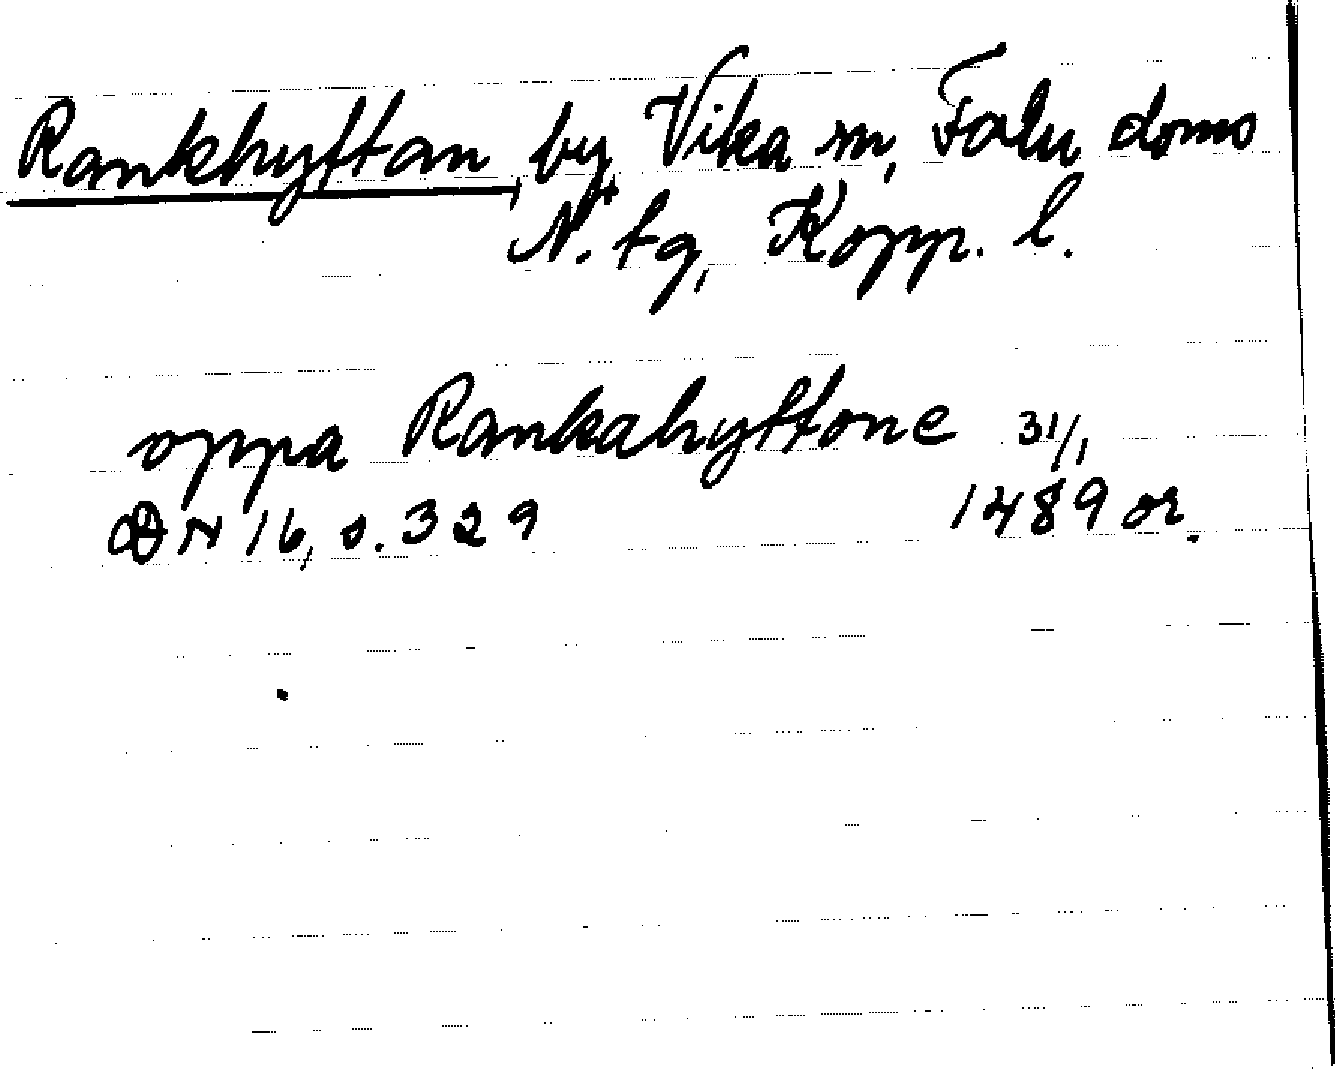 Rankhyttan, by, Vika sn, Falu doms
N. tg, Kopp. l.
oppa Rankahyttone 31/1
DN 16, s. 329 1489 or.